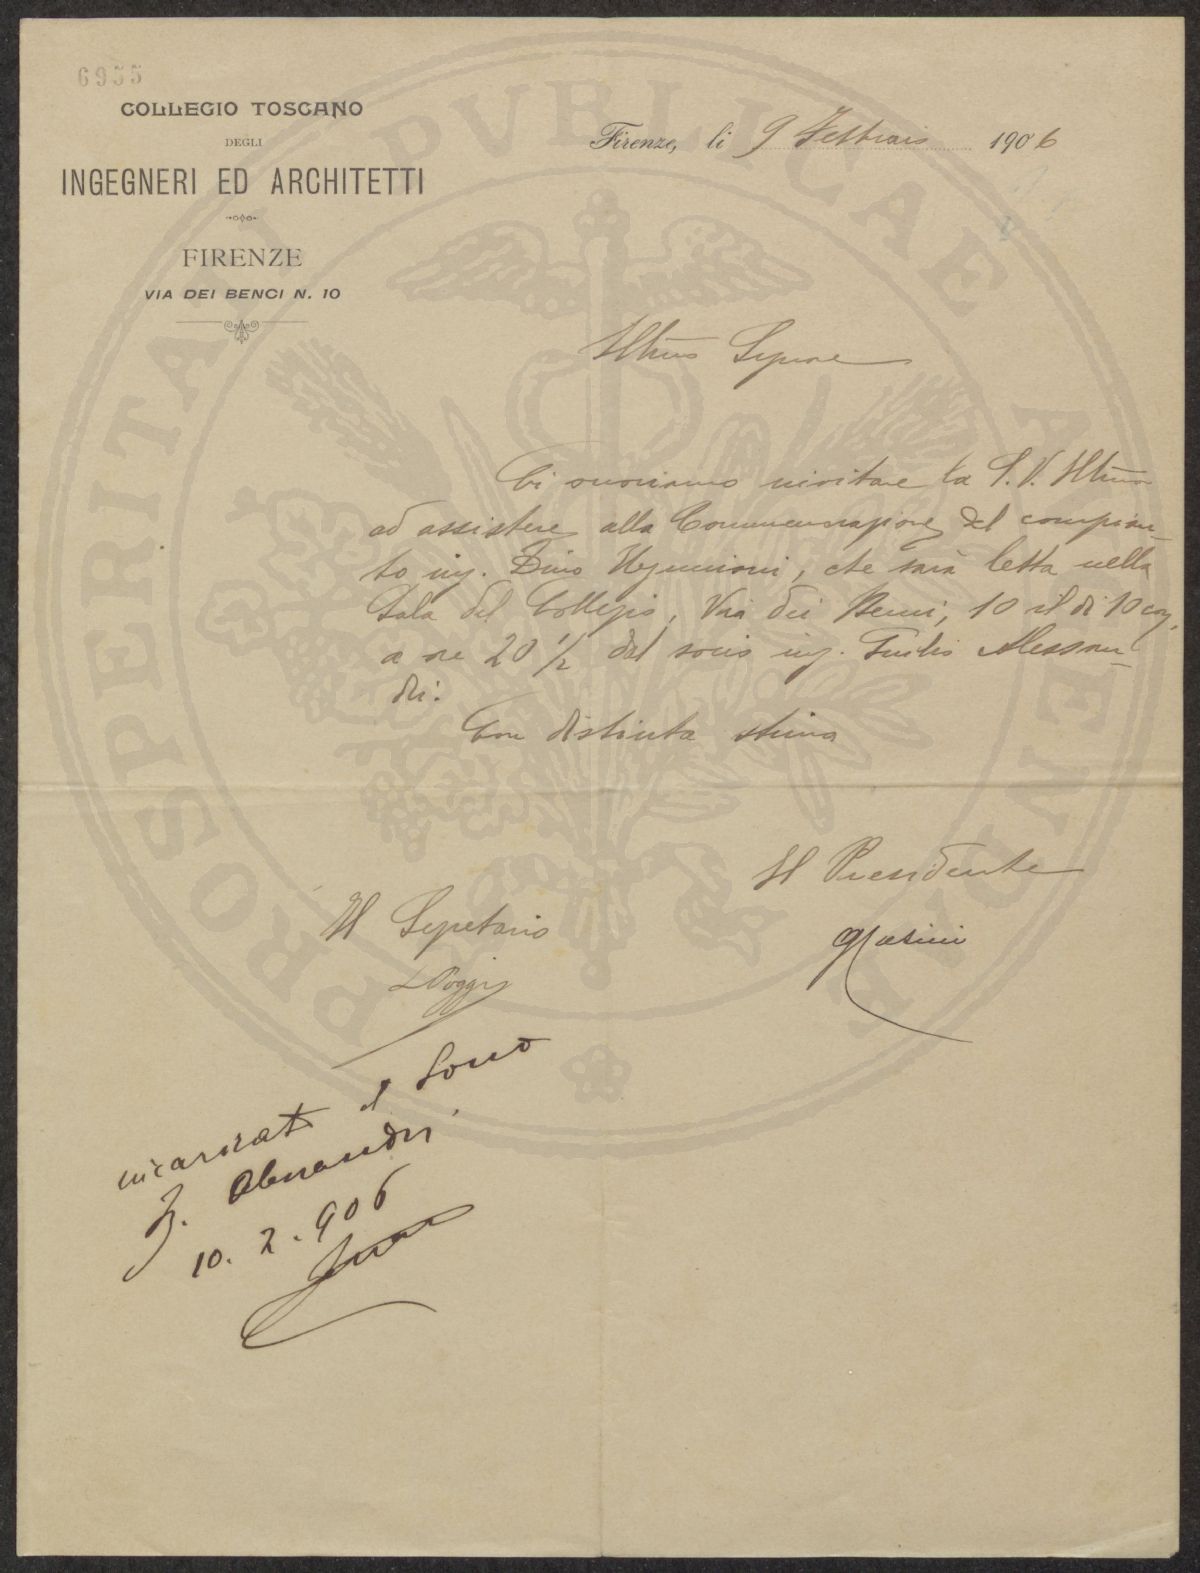 6955
COLLEGIO TOSCANO
DEGLI
INGEGNERI ED ARCHITETTI
FIRENZE
VIA DEI BENCI N. 10
Firenze, li 9 Febbraio 1906
Illmo Signore
Ci onoriamo invitare la S. V. Illma
ad assistere alla Commemorazione del compian-
to ing. Dino Uguccioni, che sarà letta nella
Sala del Collegio, Via dei Benci, 10 il dì 10 cor.
a ore 20 1/2 dal socio ing. Giulio Alessan-
dri.
Con distinta stima
Il Presidente
Masini
Il Segretario
Poggi
incaricato il Socio
Alessandri
10. 2. 906
PROSPERITATI PVBLICAE AVGENDAE